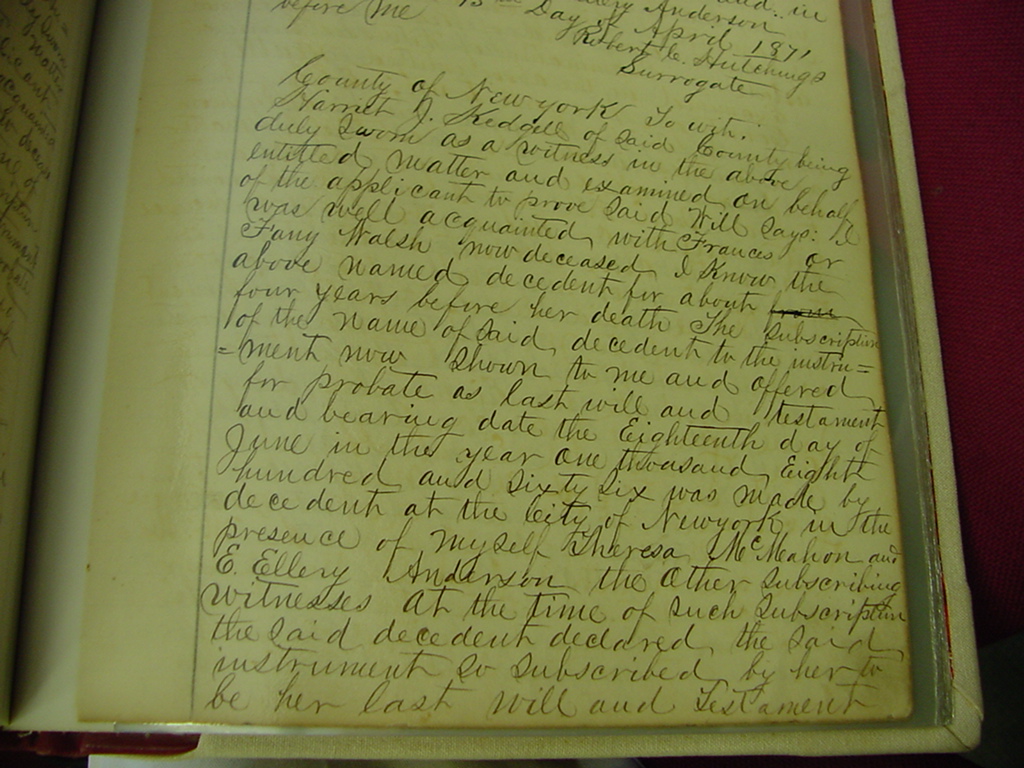 before me
Anderson. in
day of April 1871
Robert C. Hutchings
Surrogate
County of New York To wit:
duly sworn as a witness in the above
entitled matter and examined on behalf
of the applicant to prove said Will says: He
was well acquainted with Frances or
Fany Walsh now deceased I know the
above named decedent for about
four years before her death The subscription
of the name of said decedent to the instru=
=ment now shown to me and offered
for probate as last will and testament
and bearing date the Eighteenth day of
June in the year one thousand Eight
hundred and sixty six was made by
decedent at the City of New york in the
presence of myself Theresa McMahon and
E Ellery Anderson the other subscribing
witnesses at the time of such subscription
the said decedent declared the said
instrument so subscribed by her to
be her last Will and Testament